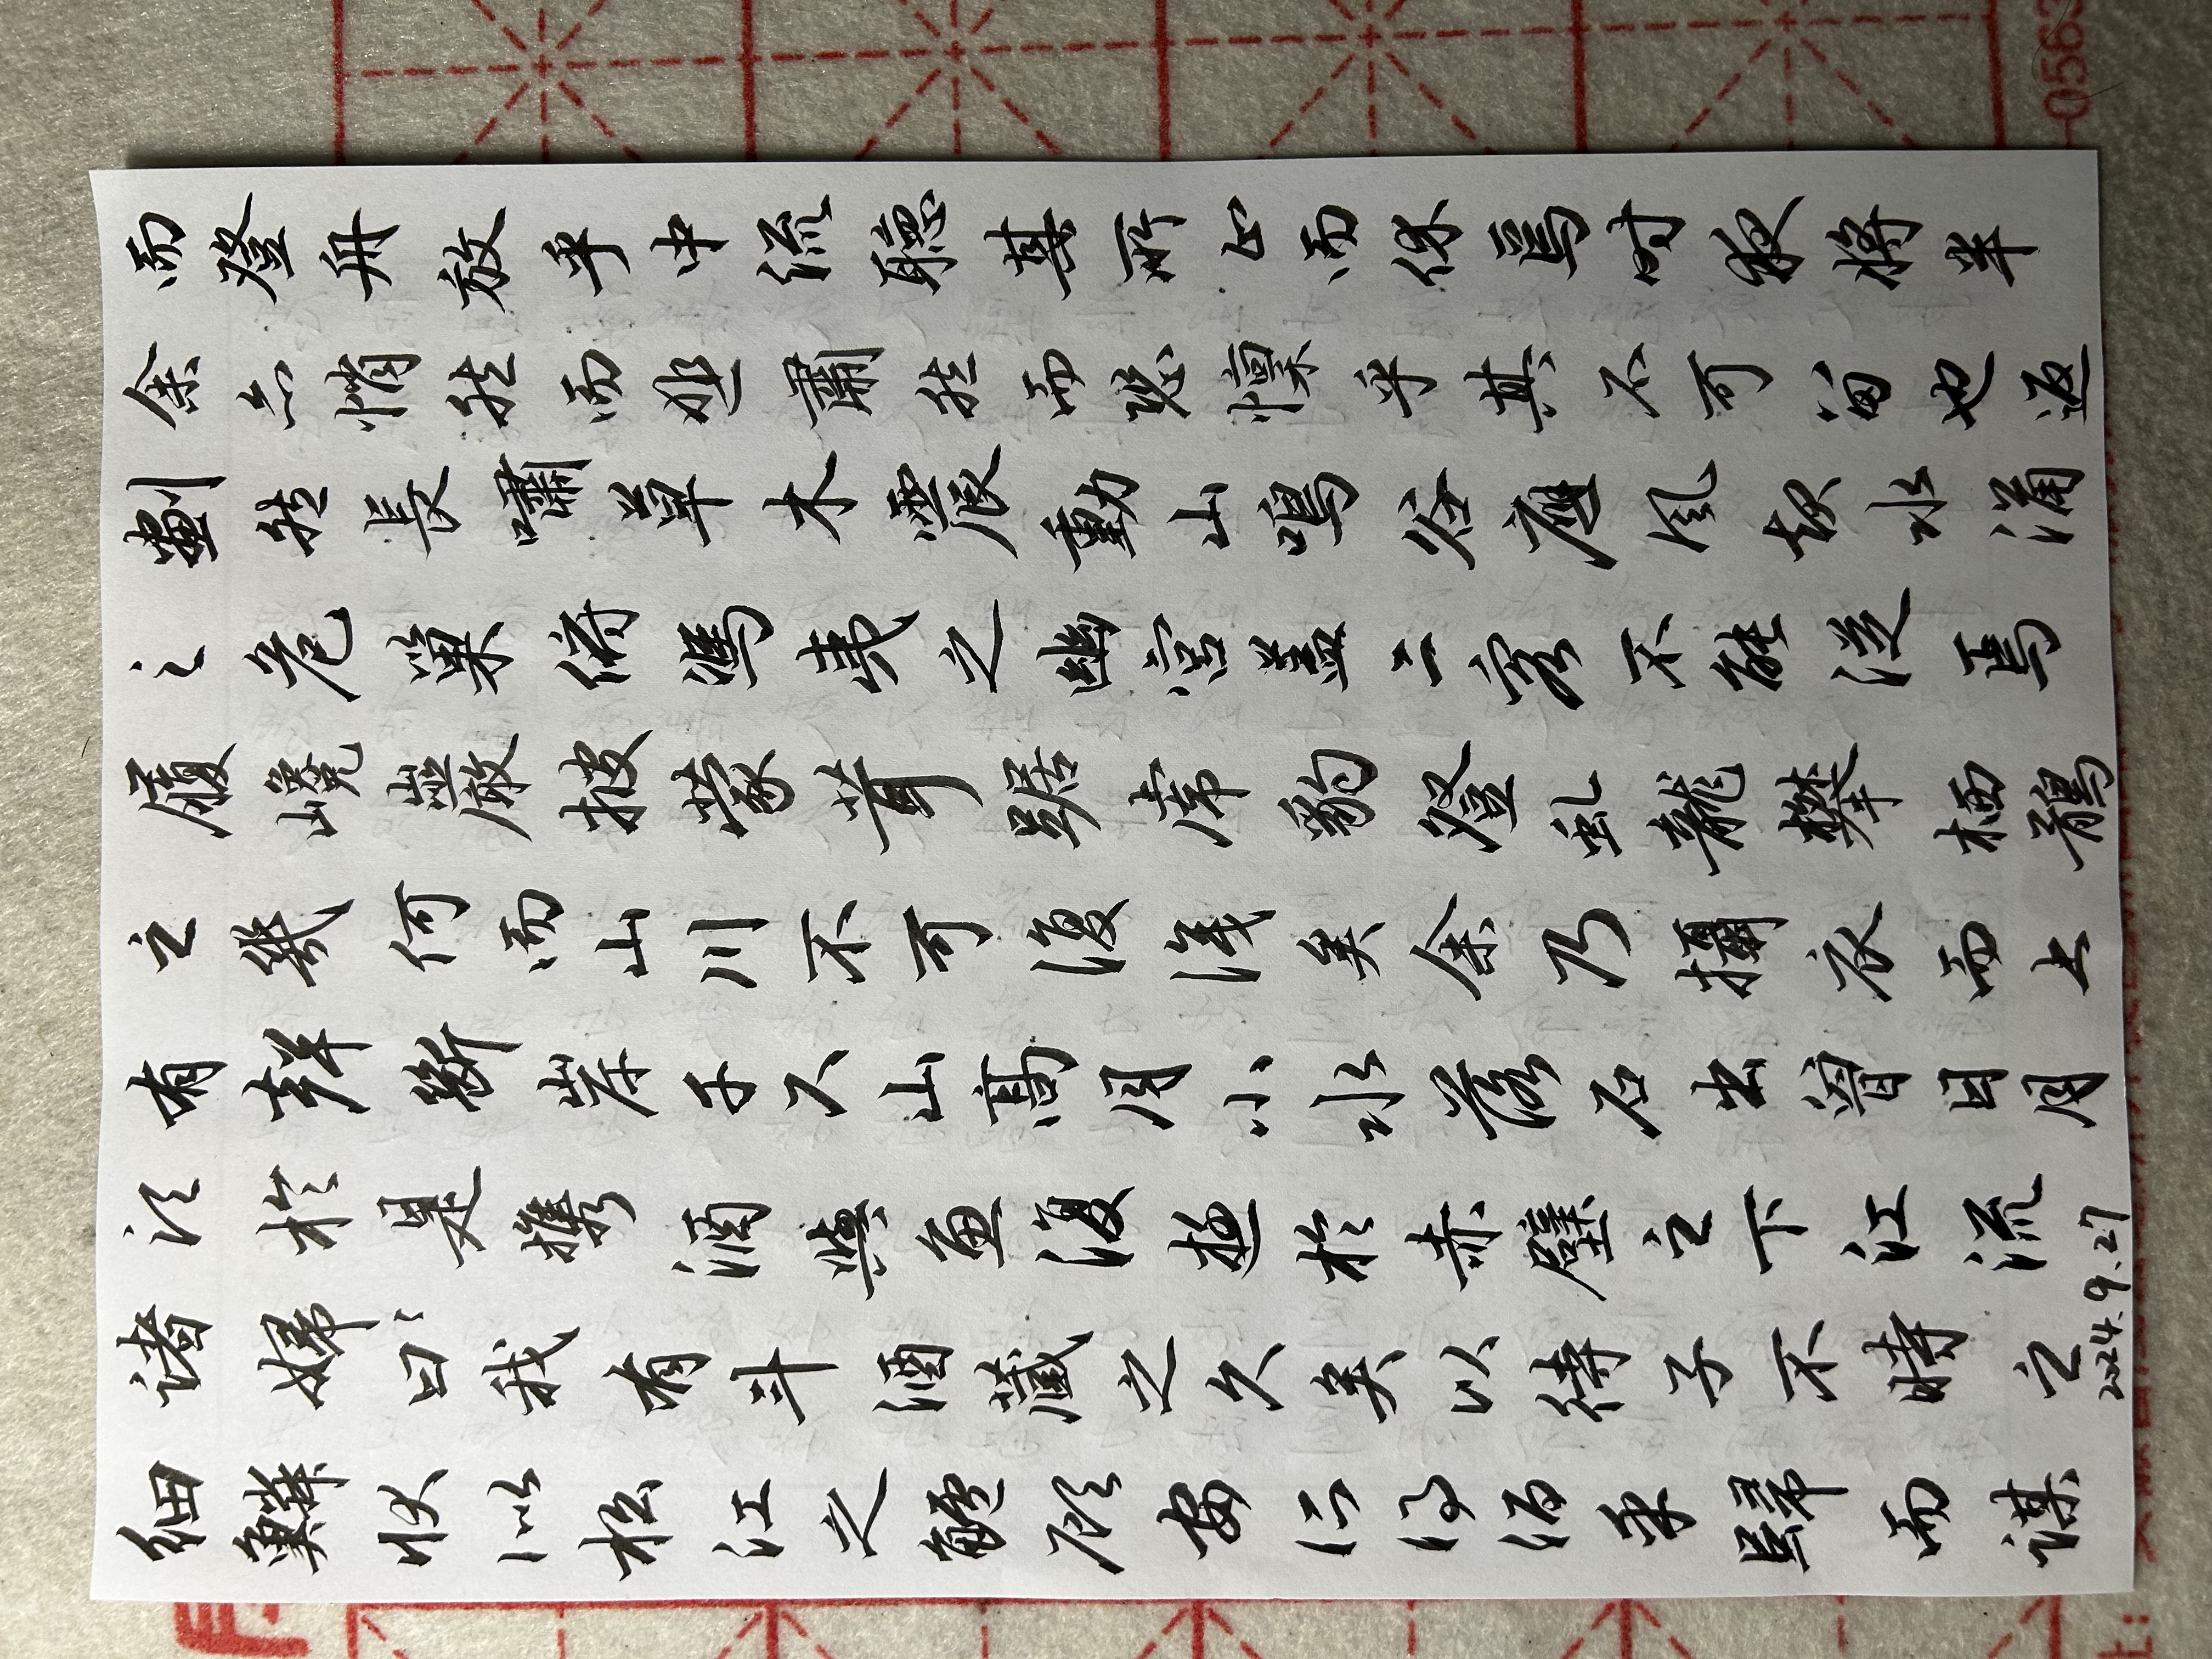 细鱗状似松江之鱸顾安所得酒乎歸而谋
诸婦〻曰我有斗酒藏之久矣以待子不時之
须於是攜酒與魚復遊於赤壁之下江流
有聲斷岸千尺山高月小水落石出曾日月
之幾何而山川不可復识矣余乃攝衣而上
履巉巖披蒙茸踞虎豹登虬龍攀栖鶻
之危巢俯馮夷之幽宫盖二客不能從焉
劃然長嘯草木震動山鳴谷應风起水涌
余亦悄然而悲肅然而恐懍乎其不可留也返
而登舟放乎中流聽其所止而休焉时夜將半
2024.9.27
-0563